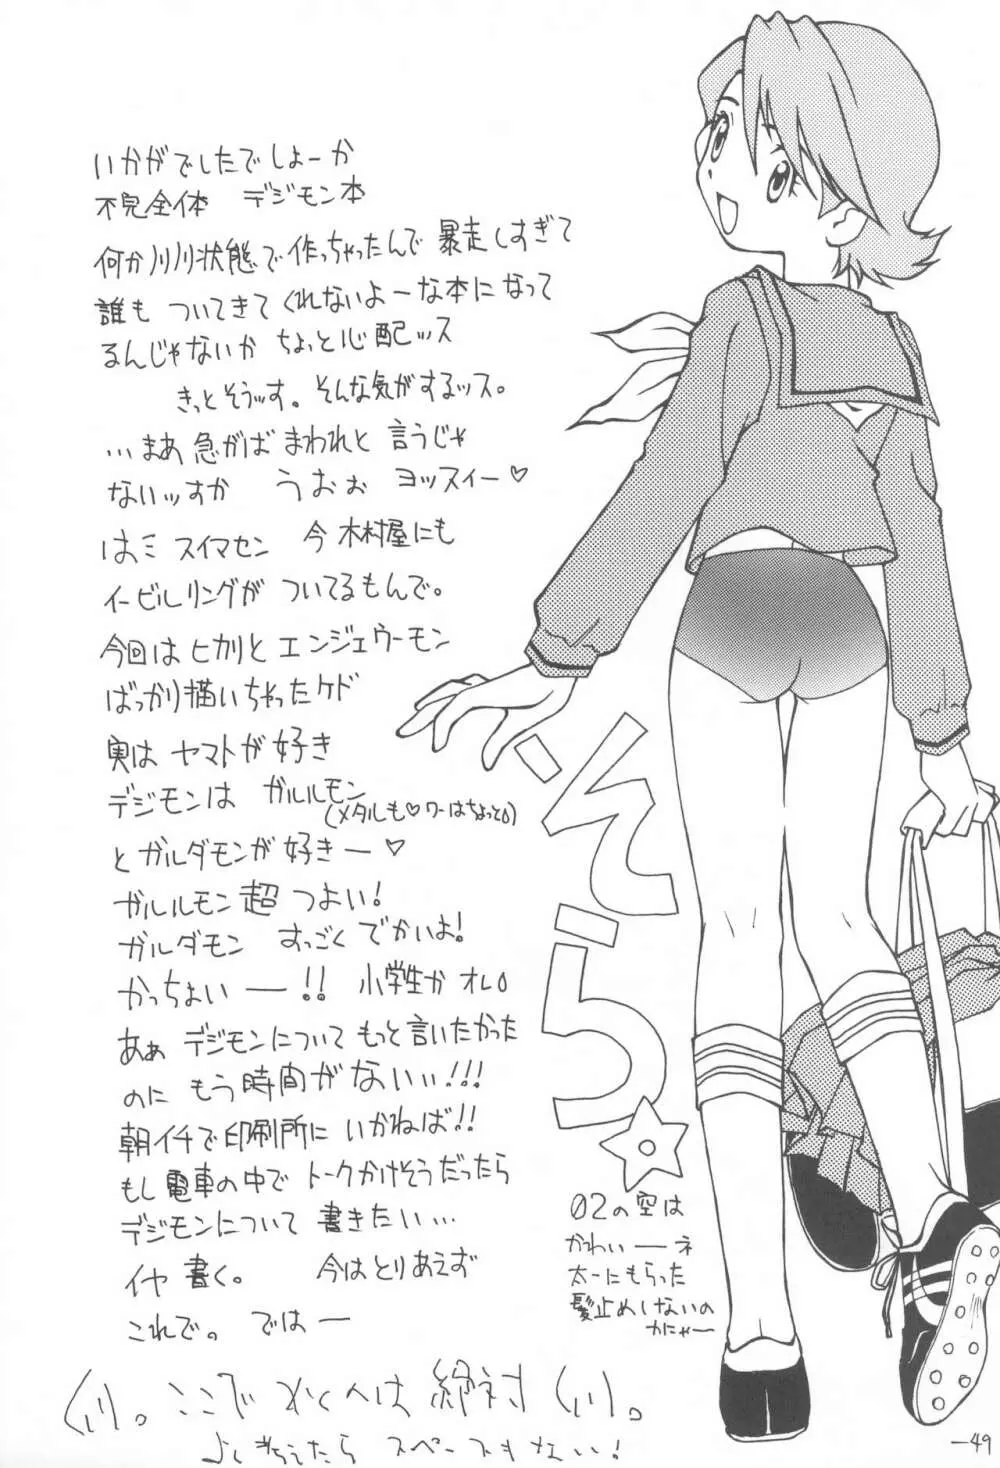 いかがでしたでしょーか
不完全体 デジモン本
何か川川状態で作っちゃったんで 暴走しすぎて
誰も ついてきてくれないよーな本になって
るんじゃないか ちょっと心配ッス
きっとそうッす。そんな気がするッス。
…まあ 急がば まわれと 言うじゃ
ないッすか うおぉ ヨッスィー♡
はミ スイマセン 今 木村屋にも
イービルリングが ついてるもんで。
今回は ヒカリと エンジェウーモン
ばっかり描いちゃったケド
実は ヤマトが好き
デジモンは ガルルモン
(メタルも♡ワーはちょっと)
とガルダモンが好きー♡
ガルルモン 超 つよい!
ガルダモン すっごく でかいよ!
かっちょいー!! 小学生か オレ。
あぁ デジモンについて もっと言いたかった
のに もう時間がないぃ!!!
朝イチで印刷所に いかねば!!
もし電車の中で トークかけそうだったら
デジモンについて 書きたい…
イヤ 書く。 今はとりあえず
これで。では ー
そら
02の空は
かわいーネ
太一にもらった
髪止めしないの
かにゃー
川。ここで は 絶対 川。
スペースもない!
—49